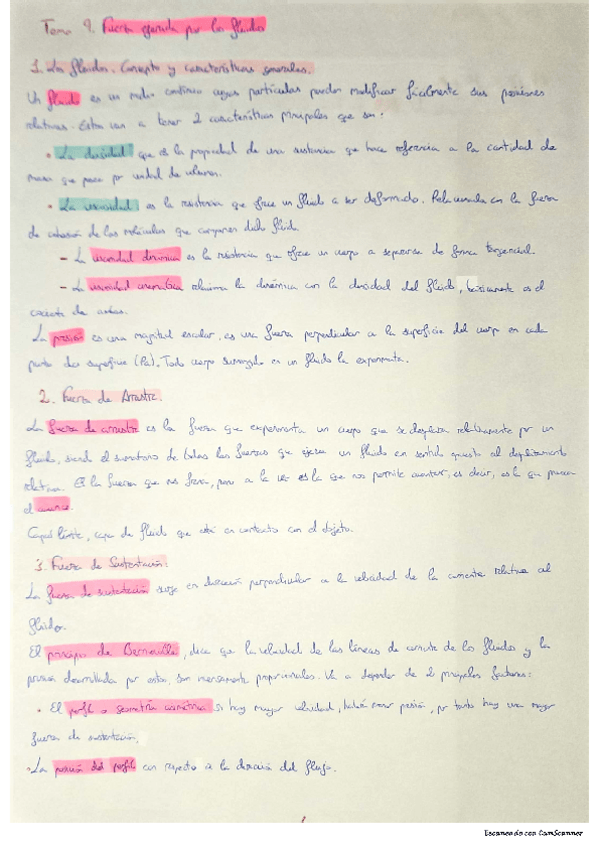 Tema 9. Fuerza ejercida por los fluidos
1. Los fluidos. Concepto y características generales.
Un fluido es un medio continuo cuyas partículas pueden modificar fácilmente sus posiciones
relativas. Estos van a tener 2 características principales que son:
• La densidad que es la propiedad de una sustancia que hace referencia a la cantidad de
masa que posee por unidad de volumen.
• La viscosidad es la resistencia que ofrece un fluido a ser deformado. Relacionada con la fuerza
de cohesión de las moléculas que componen dicho fluido.
- La viscosidad dinámica es la resistencia que ofrece un cuerpo a separarse de forma tangencial.
- La viscosidad cinemática relaciona la dinámica con la densidad del fluido, básicamente es el
cociente de ambas.
La presión es una magnitud escalar, es una fuerza perpendicular a la superficie del cuerpo en cada
punto de superficie (Pa). Todo cuerpo sumergido en un fluido la experimenta.
2. Fuerza de Arrastre.
La fuerza de arrastre es la fuerza que experimenta un cuerpo que se desplaza relativamente por un
fluido, siendo el sumatorio de todas las fuerzas que ejerce un fluido en sentido opuesto al desplazamiento
relativo. Es la fuerza que nos frena, pero a la vez es la que nos permite avanzar, es decir, es la que provoca
el avance.
Capa límite, capa de fluido que está en contacto con el objeto.
3. Fuerza de Sustentación:
La fuerza de sustentación surge en dirección perpendicular a la velocidad de la corriente relativa al
fluido.
El principio de Bernouille, dice que la velocidad de las líneas de corriente de los fluidos y la
presión desarrollada por estos, son inversamente proporcionales. Va a depender de 2 principales factores:
• El perfil o geometría asimétrica si hay mayor velocidad, habrá menor presión, por tanto hay una mayor
fuerza de sustentación.
• La posición del perfil con respecto a la dirección del flujo.
Escaneado con CamScanner